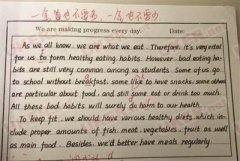 We are making progress every day. Date:
As we all know, we are what we eat. Therefore, it's very vital
for us to form healthy eating habits. However, bad eating ha-
bits are still very common among us students. Some of us go
to school without breakfast, some like to have snacks, some others
are particular about food, and still some eat or drink too much.
All these bad habits will surely do harm to our health.
To keep fit, we should have various healthy diets which in-
clude proper amounts of fish meat, vegetables, fruit as well
as main food. Besides, we'd better have meals regularly.